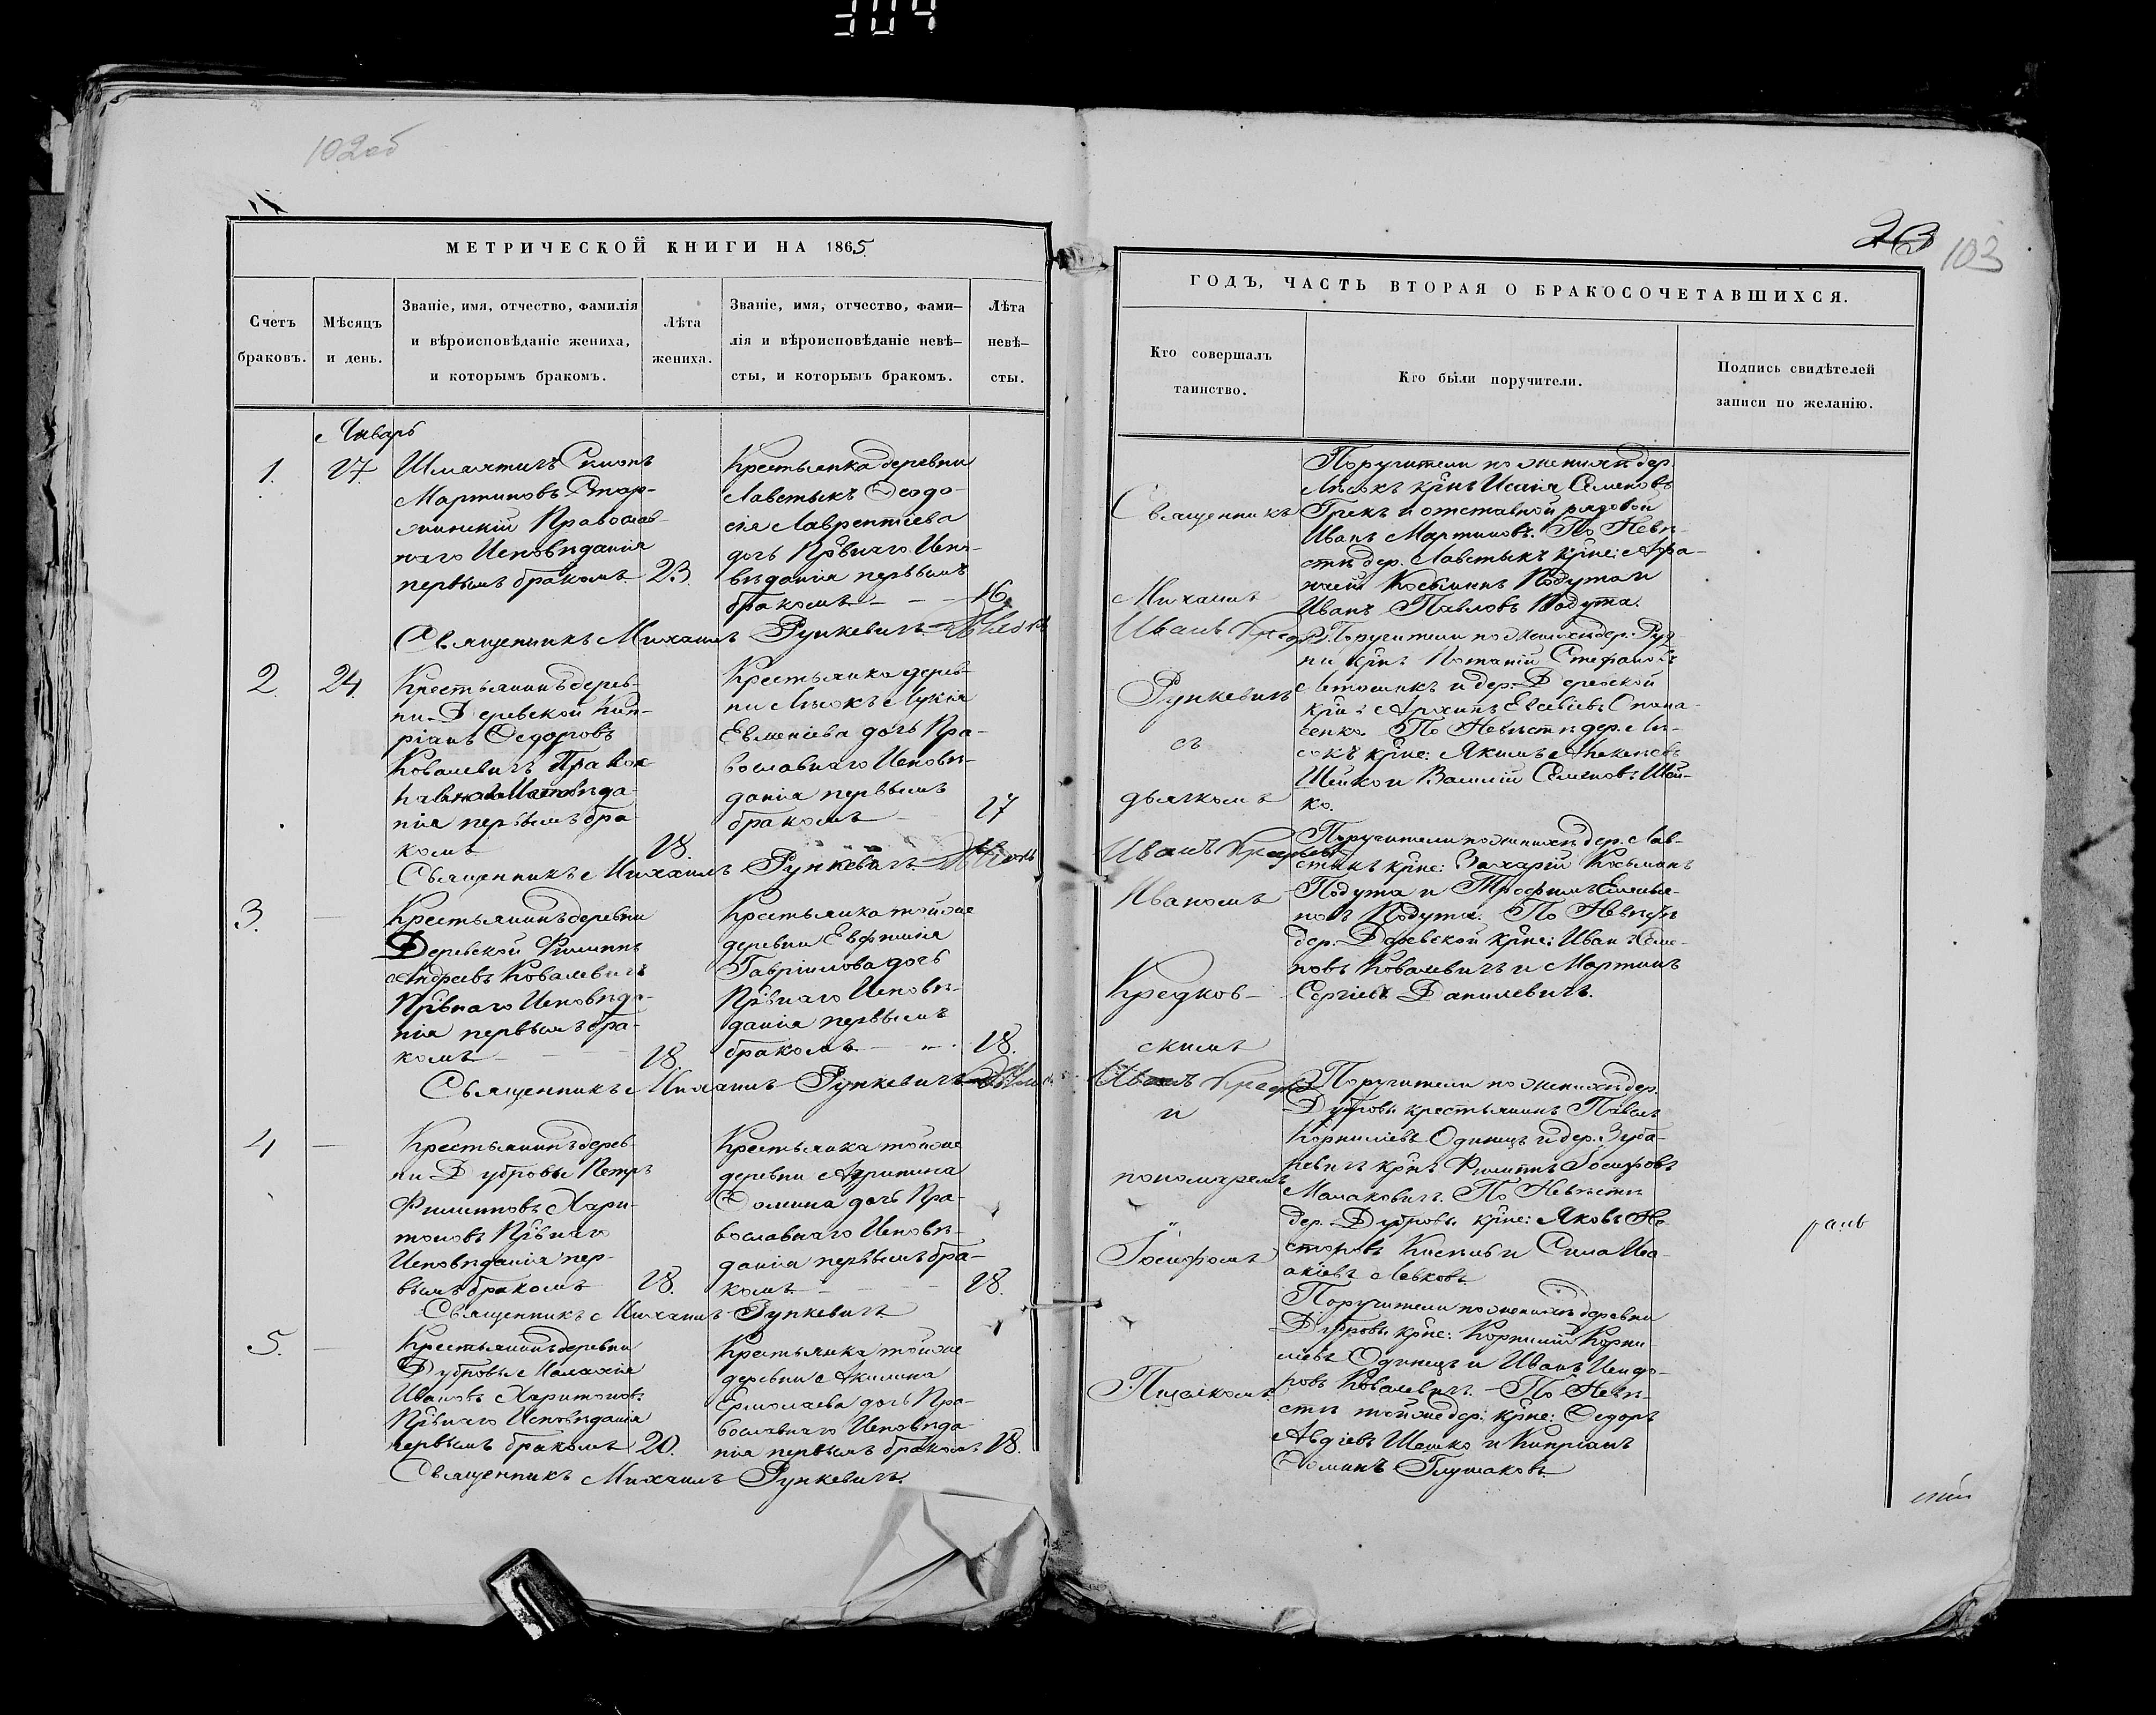 304
102об
МЕТРИЧЕСКОЙ КНИГИ НА 1865
Счетъ браковъ.
Мѣсяцъ и день.
Званіе, имя, отчество, фамилія
и вѣроисповѣданіе жениха,
и которымъ бракомъ.
Лѣта
жениха.
Званіе, имя, отчество, фами–
лія и вѣроисповѣданіе невѣ–
сты, и которымъ бракомъ.
Лѣта
невѣ–
сты.
Январь
1.
27
Шляхтичъ
Мартиновъ
Православ-
наго Исповѣданія
первымъ бракомъ
23.
Крестьянка деревни
Лавстыкъ Ѳеодо-
сія Лаврентіева
дочь Прáвнаго Испо-
вѣданія первымъ
бракомъ
16
Священникъ Михаилъ Рункевичъ
2.
24.
Крестьянинъ дерев-
ни Деревской Кип-
ріанъ Ѳедоровъ
Ковалевичъ
нія первымъ бра
комъ
18.
Крестьянка дерев-
ни Лясокъ Лукія
Евменіева дочь Пра-
вославнаго Исповѣ-
данія первымъ
бракомъ
17
Священникъ Михаилъ Рункевичъ
3.
Крестьянинъ деревни
Деревской Филиппъ
Андреевъ Ковалевичъ
Прáвнаго Исповѣда-
нія первымъ бра-
комъ
18.
Крестьянка тойже
деревни Евфимія
Гавріилова дочь
Прáвнаго Исповѣ-
данія первымъ
бракомъ
18.
Священникъ Михаилъ Рункевичъ
4
Крестьянинъ дерев-
ни Дубровы Петръ
Филипповъ Хари-
тоновъ Прáвнаго
Исповѣданія пер-
вымъ бракомъ
18.
Крестьянка тойже
деревни Агрипина
Ѳомина дочь Пра-
вославнаго Исповѣ-
данія первымъ бра-
комъ
18.
Священникъ Михаилъ Рункевичъ
5.
Крестьянинъ деревни
Дубровы Малахія
Ивановъ Харитоновъ
Прáвнаго Исповѣданія
первымъ бракомъ
20.
Крестьянка тойже
деревни Акилина
Ермолаева дочь Пра-
вославнаго Исповѣда
нія первымъ бракомъ
18.
Священникъ Михаилъ Рункевичъ.
23
103
ГОДЪ, ЧАСТЬ ВТОРАЯ О БРАКОСОЧЕТАВШИХСЯ.
Кто совершалъ
таинство.
Кто были поручители.
Подпись свидѣтелей
записи по желанію.
Священникъ
Михаилъ
Рункевичъ
съ
дьячкомъ
Иваномъ
Кредков-
скимъ
и
пономаремъ
Іосифомъ
Поручители по женихѣ дер.
Лясокъ крнъ Исаія Семеновъ
Грекъ и отставной рядовой
Иванъ Мартиновъ. По Невѣ-
стѣ дер. Лавстыкъ крне: Афа-
насій Косьминъ Кодута и
Иванъ Павловъ Кодута.
Поручители по женихѣ дер. Руд-
ни крнъ Потапій Стефановъ
и дер. Деревской
крнъ Архипъ Евсевіевъ Опана-
сенко. По Невѣстѣ дер. Ля-
сокъ крне: Якимъ
Шейко и Василій Семеновъ Шей-
ко.
Поручители по женихѣ дер. Лав-
стыкъ крне: Захарій Косьминъ
Кодута и Трофимъ Емелья-
новъ Кодута. По Невѣстѣ
дер. Деревской крне: Иванъ Семе-
новъ Ковалевичъ и Мартинъ
Сергіевъ Данилевичъ.
Поручители по женихѣ дер.
Дубровы крестьянинъ Павелъ
Корниліевъ Одинецъ и дер. Зуба-
ревичъ крнъ Филиппъ Іосифовъ
Малаховичъ. По Невѣстѣ
дер. Дубровы крне: Яковъ Не-
сторовъ и Сила Иса-
акіевъ Левковъ
Поручители по женихѣ деревни
Дубровы крне: Корнилій Корни-
ліевъ Одинецъ и Иванъ Исидо-
ровъ Ковалевичъ. По Невѣ-
стѣ тойже дер: крне: Ѳедоръ
Авдіевъ Шешко и Кипріанъ
Ѳоминъ Глушаковъ